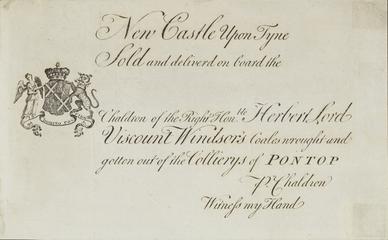 New Castle Upon Tyne
Sold and deliverd on board the
Chaldron of the Right Honble Herbert Lord
Viscount Windsor's Coales wrought and
gotten out of the Collierys of PONTOP
pr. Chaldron
Witness my Hand